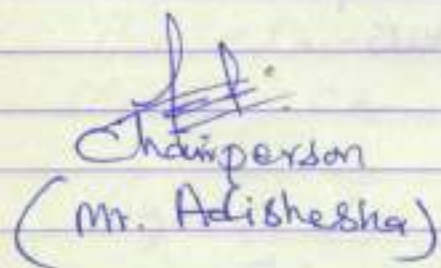 Chairperson
(Mr. Adishesha)